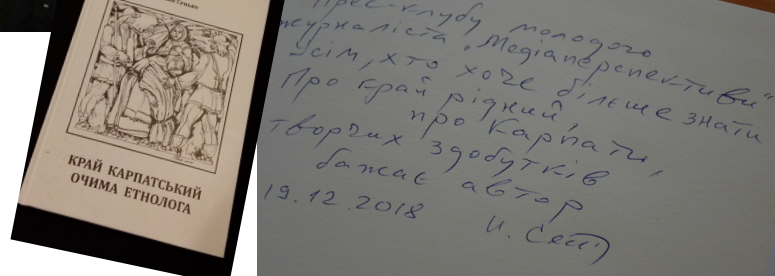 Сенько
КРАЙ КАРПАТСЬКИЙ
ОЧИМА ЕТНОЛОГА
Прес-клубу молодого
журналіста „Медіаперспективи"
Усім, хто хоче більше знати
Про край рідний,
про Карпати,
творчих здобутків
бажає автор
19.12.2018
І. Сень